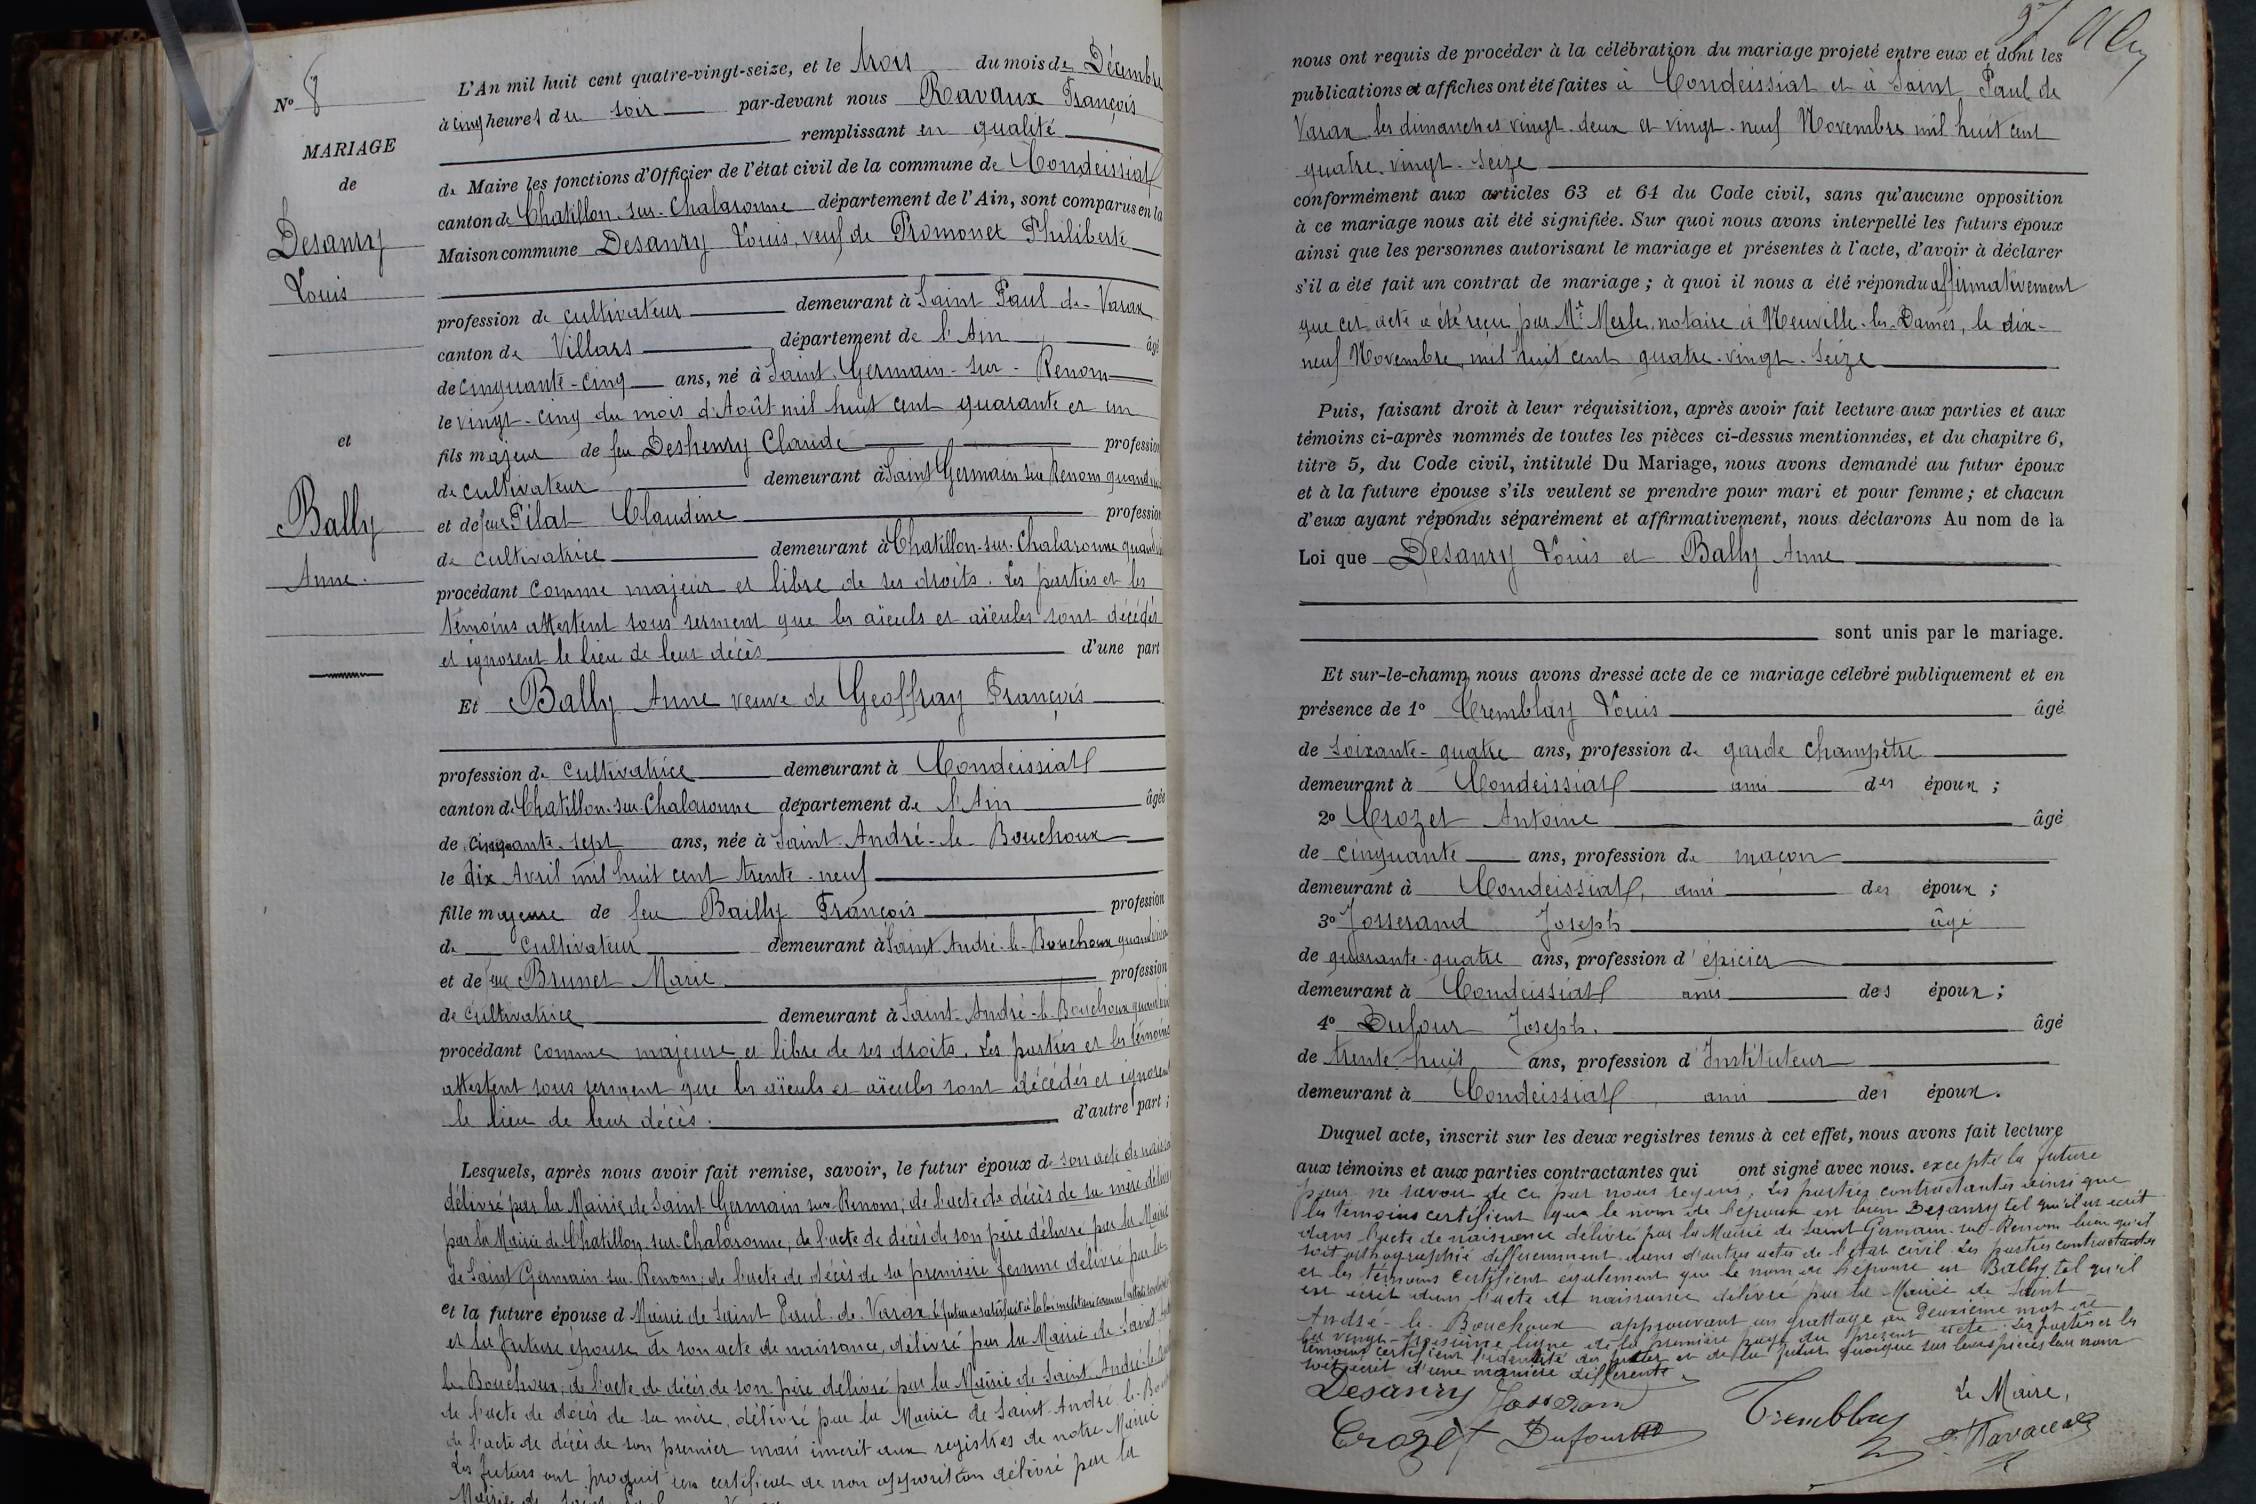 Nº 8
MARIAGE
de
Desanry
Louis
et
Bally
Anne.
L'An mil huit cent quatre-vingt-seize, et le trois du mois de Décembre
à cinq heures du soir par-devant nous Ravaux François
remplissant en qualité
de Maire les fonctions d'Officier de l'état civil de la commune de Condeissiat
canton de Chatillon-sur-Chalaronne département de l'Ain, sont comparus en la
Maison commune Desanry Louis, veuf de Promonet Philiberte
profession de cultivateur demeurant à Saint Paul de Varax
canton de Villars département de l'Ain âgé
de cinquante-cinq ans, né à Saint Germain-sur-Renom
le vingt-cinq du mois d'Août mil huit cent quarante et un
fils majeur de feu Deshenry Claude profession
de cultivateur demeurant à Saint Germain sur Renom quand
et de feue Pilat Claudine profession
de cultivatrice demeurant à Chatillon-sur-Chalaronne quand
procédant comme majeur et libre de ses droits. Les parties et les
témoins attestent sous serment que les aïeuls et aïeules sont décédés
et ignorent le lieu de leur décès d'une part
Et Bally Anne veuve de Geoffray François
profession de cultivatrice demeurant à Condeissiat
canton de Chatillon-sur-Chalaronne département de l'Ain âgée
de cinquante-sept ans, née à Saint-André-le-Bouchoux
le dix Avril mil huit cent trente-neuf
fille majeure de feu Bailly François profession
de cultivateur demeurant à Saint-André-le-Bouchoux quand
et de feue Brunet Marie profession
de cultivatrice demeurant à Saint-André-le-Bouchoux quand
procédant comme majeure et libre de ses droits. Les parties et les témoins
attestent sous serment que les aïeuls et aïeules sont décédés et ignorent
le lieu de leur décès. d'autre part ;
Lesquels, après nous avoir fait remise, savoir, le futur époux de son acte de
délivré par la Mairie de Saint Germain sur Renom; de l'acte de décès de sa mère
par la Mairie de Chatillon-sur-Chalaronne, de l'acte de décès de son père délivré par la Mairie
de Saint Germain-sur-Renom; de l'acte de décès de sa première femme délivré par la
et la future épouse d Mairie de Saint Paul-de-Varax
et la future épouse de son acte de naissance, délivré par la Mairie de Saint
le Bouchoux; de l'acte de décès de son père délivré par la Mairie de Saint-André-le
de l'acte de décès de sa mère, délivré par la Mairie de Saint-André-le-
de l'acte de décès de son premier mari inscrit aux registres de notre Mairie
Les futurs ont produit un certificat de non opposition délivré par la
Mairie de Saint
nous ont requis de procéder à la célébration du mariage projeté entre eux et dont les
publications et affiches ont été faites à Condeissiat et à Saint Paul de
Varax les dimanches vingt-deux et vingt-neuf Novembre mil huit cent
quatre-vingt-seize
conformément aux articles 63 et 64 du Code civil, sans qu'aucune opposition
à ce mariage nous ait été signifiée. Sur quoi nous avons interpellé les futurs époux
ainsi que les personnes autorisant le mariage et présentes à l'acte, d'avoir à déclarer
s'il a été fait un contrat de mariage ; à quoi il nous a été répondu affirmativement
que cet acte a été reçu par Me Merle, notaire à Neuville-les-Dames, le dix-
neuf Novembre mil huit cent quatre-vingt-seize
Puis, faisant droit à leur réquisition, après avoir fait lecture aux parties et aux
témoins ci-après nommés de toutes les pièces ci-dessus mentionnées, et du chapitre 6,
titre 5, du Code civil, intitulé Du Mariage, nous avons demandé au futur époux
et à la future épouse s'ils veulent se prendre pour mari et pour femme ; et chacun
d'eux ayant répondu séparément et affirmativement, nous déclarons Au nom de la
Loi que Desanry Louis et Bally Anne
sont unis par le mariage.
Et sur-le-champ, nous avons dressé acte de ce mariage célébré publiquement et en
présence de 1º Tremblay Louis âgé
de soixante-quatre ans, profession de garde champêtre
demeurant à Condeissiat ami des époux ;
2º Crozet Antoine âgé
de cinquante ans, profession de maçon
demeurant à Condeissiat, ami des époux ;
3º Josserand Joseph âgé
de quarante-quatre ans, profession d'épicier
demeurant à Condeissiat ami des époux ;
4º Dufour Joseph. âgé
de trente-huit ans, profession d'Instituteur
demeurant à Condeissiat, ami des époux.
Duquel acte, inscrit sur les deux registres tenus à cet effet, nous avons fait lecture
aux témoins et aux parties contractantes qui ont signé avec nous. excepté la future
pour ne savoir de ce par nous requis, Les parties contractantes ainsi que
les témoins certifient que le nom de l'époux est bien Desanry tel qu'il est écrit
dans l'acte de naissance délivré par la Mairie de Saint Germain-sur-Renom bien qu'il
soit orthographié différemment dans d'autres actes de l'état civil. Les parties contractantes
et les témoins certifient également que le nom de l'épouse est Bally tel qu'il
est écrit dans l'acte de naissance délivré par la Mairie de Saint
André-le-Bouchoux approuvant un grattage au deuxième mot de
la vingt-troisième ligne de la première page du présent acte. Les parties et les
témoins certifient l'identité du futur et de la future quoique sur leurs pièces leur nom
soit écrit d'une manière différente.
Desanry Josserand Tremblay Le Maire,
Crozet Dufour Ravaux